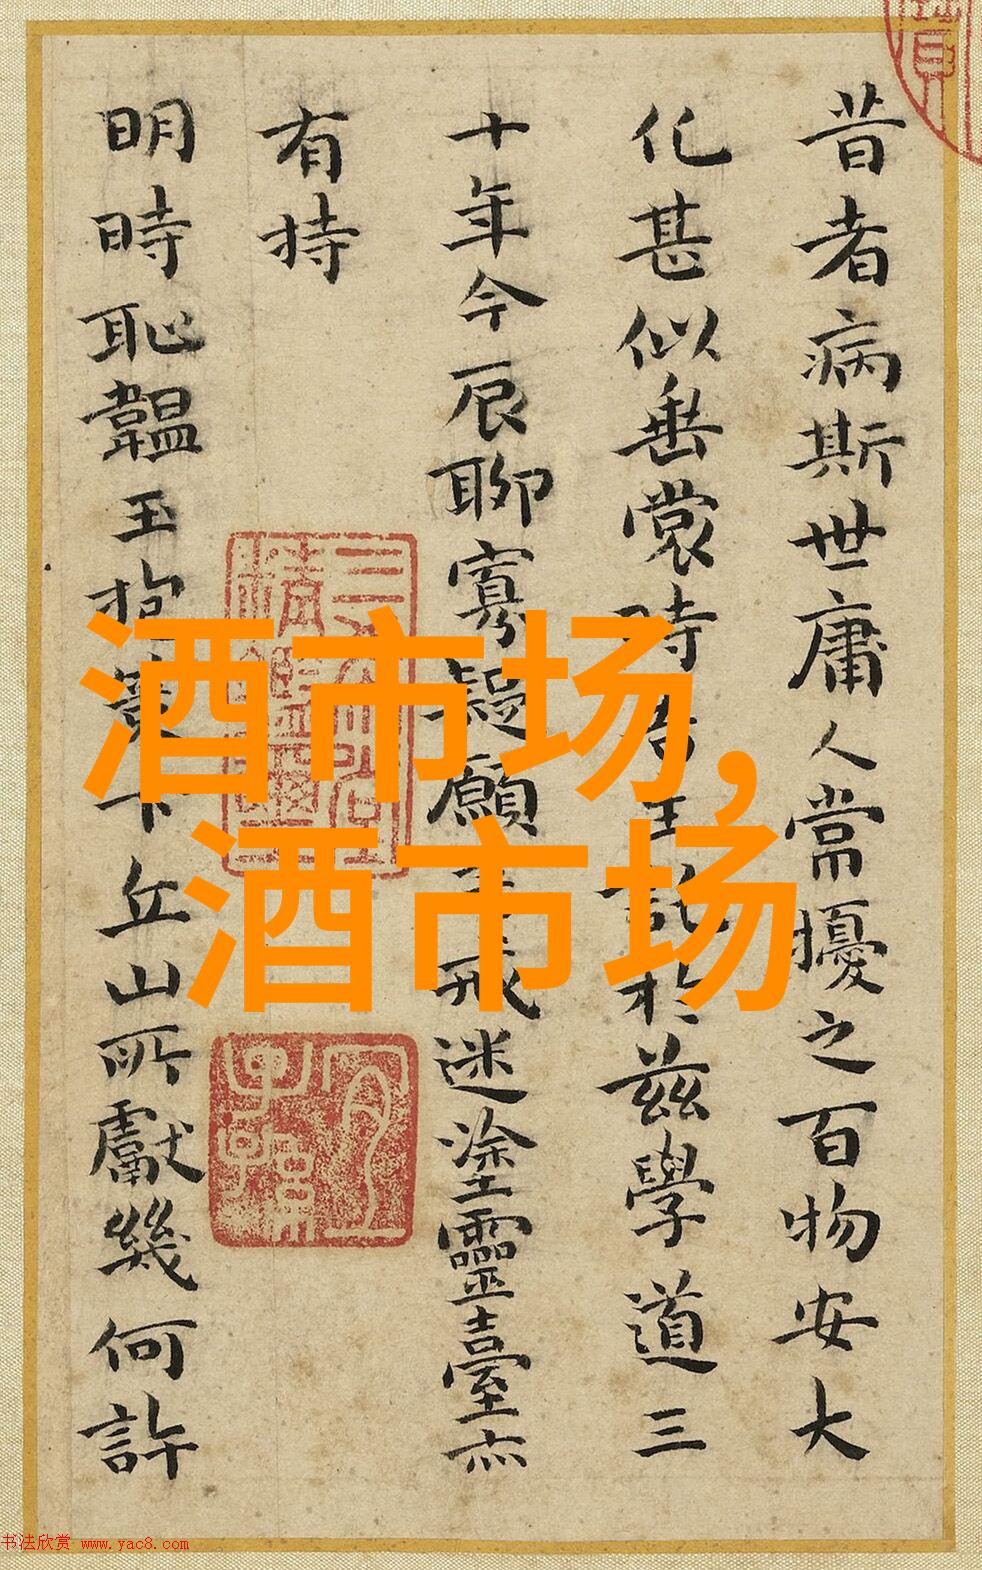 昔者病斯世庸人常擾之百物安大
化甚似垂裳時
於茲學道三
十年今辰聊寡疑願
戒迷塗靈臺亦
有持
明時恥韞玉抱
下丘山所獻幾何許
酒市场,
酒市场
书法欣赏 www.yac8.com